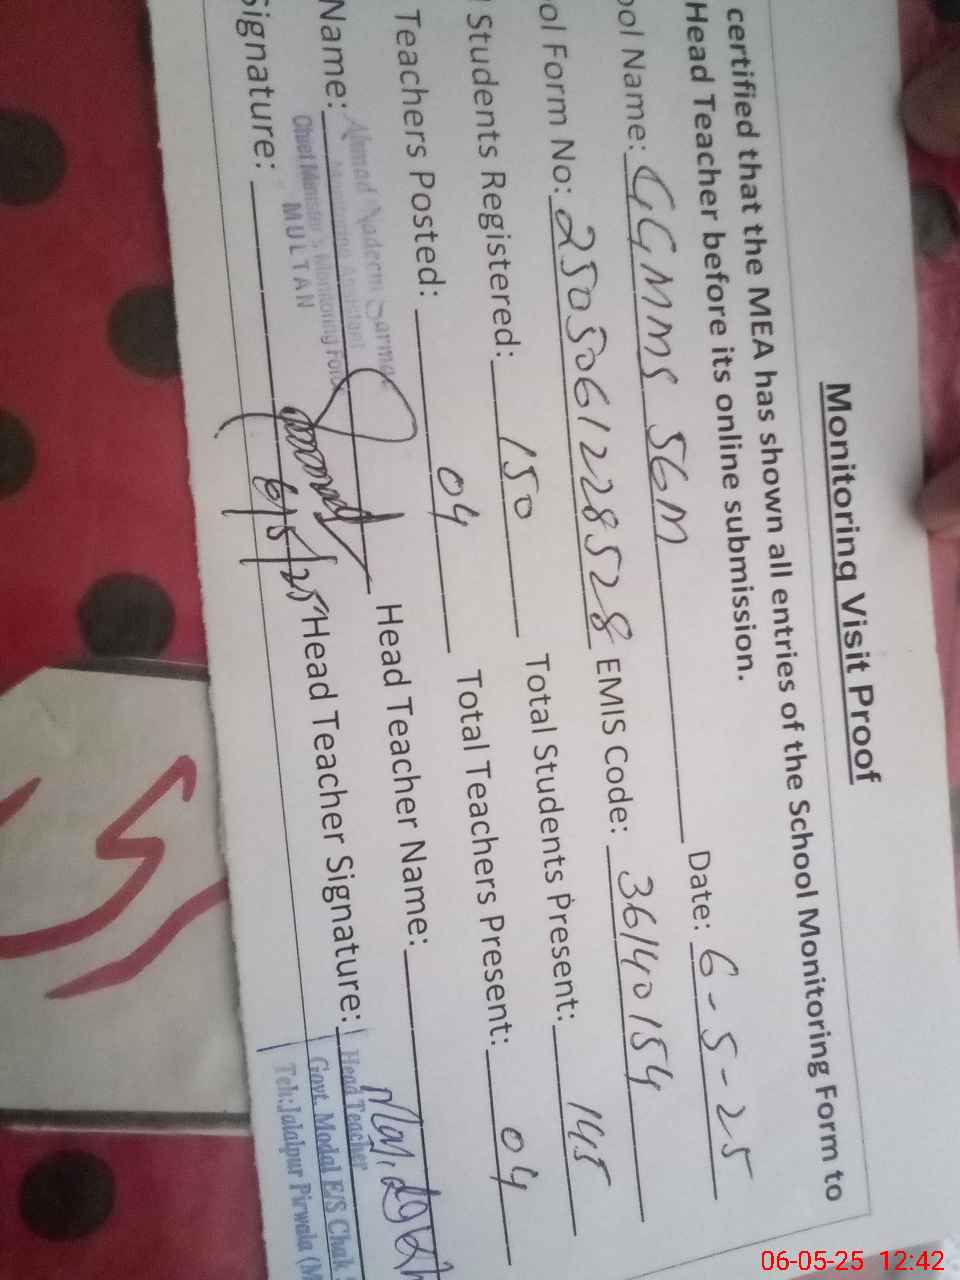 Monitoring Visit Proof
certified that the MEA has shown all entries of the School Monitoring Form to
Head Teacher before its online submission.
ool Name: GGMMS 56M Date: 6-5-25
ol Form No: 2505061228528 EMIS Code: 36140154
Students Registered: 150 Total Students Present: 145
Teachers Posted: 04 Total Teachers Present: 04
Name: Ahmad Nadeem Sarmad Head Teacher Name:
Monitoring Assistant
Chief Minister's Monitoring Force
MULTAN
Signature: 6/5/25 Head Teacher Signature:
Head Teacher
Govt. Modal E/S Chak
Teh:Jalalpur Pirwala (M
06-05-25 12:42